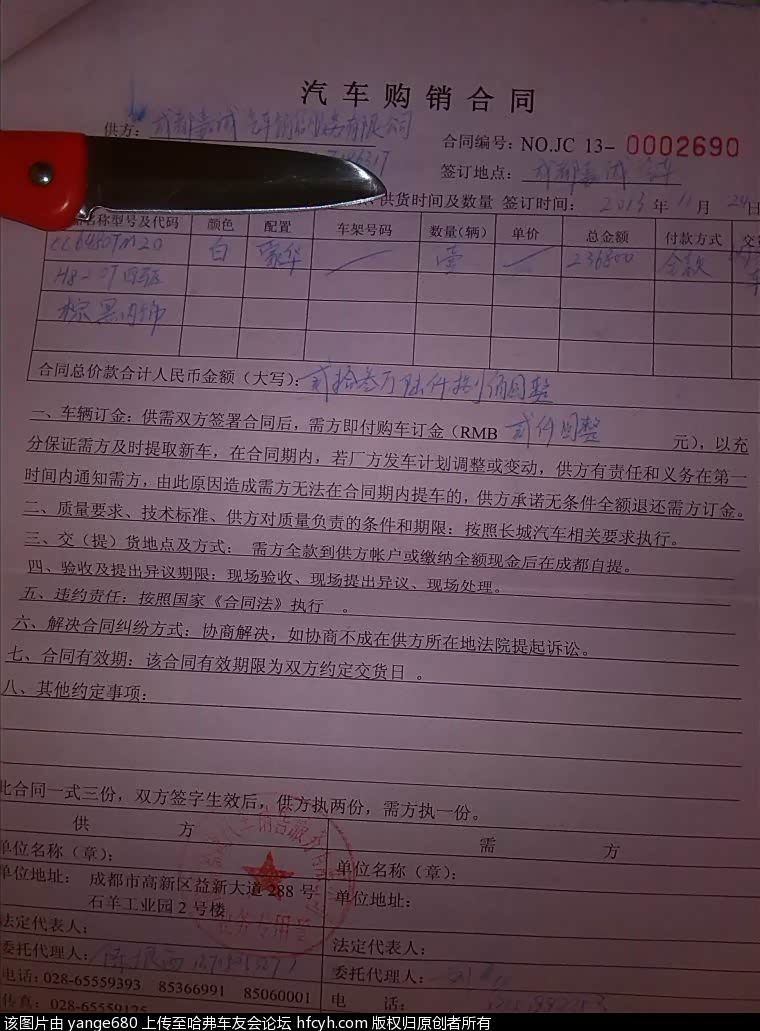 汽车购销合同
供方：成都嘉成汽车销售服务有限公司
合同编号：NO.JC 13- 0002690
签订地点：成都嘉成
供货时间及数量 签订时间：2013年11月
名称型号及代码 颜色 配置 车架号码 数量(辆) 单价 总金额 付款方式 交
CC6480TM20 白 豪华 壹 236800 全款
H8-2.0T四驱
棕黑内饰
合同总价款合计人民币金额（大写）：贰拾叁万陆仟捌佰圆整
一、车辆订金：供需双方签署合同后，需方即付购车订金（RMB 贰仟圆整 元），以充
分保证需方及时提取新车，在合同期内，若厂方发车计划调整或变动，供方有责任和义务在第一
时间内通知需方，由此原因造成需方无法在合同期内提车的，供方承诺无条件全额退还需方订金。
二、质量要求、技术标准、供方对质量负责的条件和期限：按照长城汽车相关要求执行。
三、交（提）货地点及方式： 需方全款到供方帐户或缴纳全额现金后在成都自提。
四、验收及提出异议期限：现场验收、现场提出异议、现场处理。
五、违约责任：按照国家《合同法》执行 。
六、解决合同纠纷方式：协商解决，如协商不成在供方所在地法院提起诉讼。
七、合同有效期：该合同有效期限为双方约定交货日 。
八、其他约定事项：
此合同一式三份，双方签字生效后，供方执两份，需方执一份。
供 方 需 方
单位名称（章）： 单位名称（章）：
单位地址： 成都市高新区益新大道 288 号 单位地址：
石羊工业园 2 号楼
法定代表人： 法定代表人：
委托代理人： 委托代理人：
电话：028-65559393 85366991 85060001 电 话：
传真：028-65559125
该图片由 yange680 上传至哈弗车友会论坛 hfcyh.com 版权归原创者所有